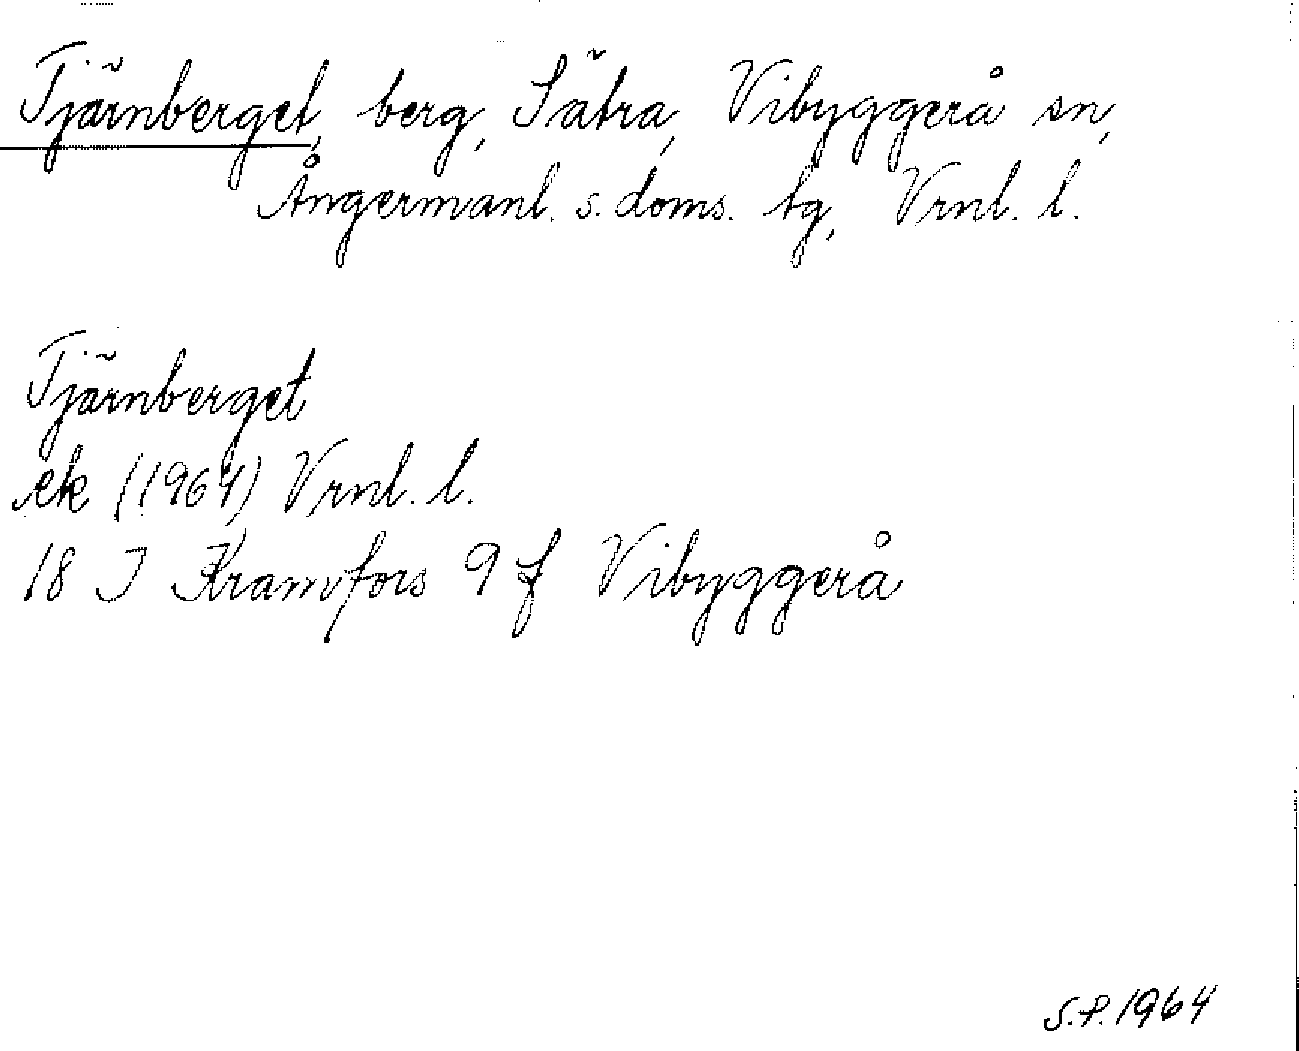 Tjärnberget, berg, Sätra, Vibyggerå sn,
Ångermanl. s. doms. tg, Vrnl. l.
Tjärnberget
ek (1964) Vrnl. l.
18 I Kramfors 9 f Vibyggerå
S.P. 1964